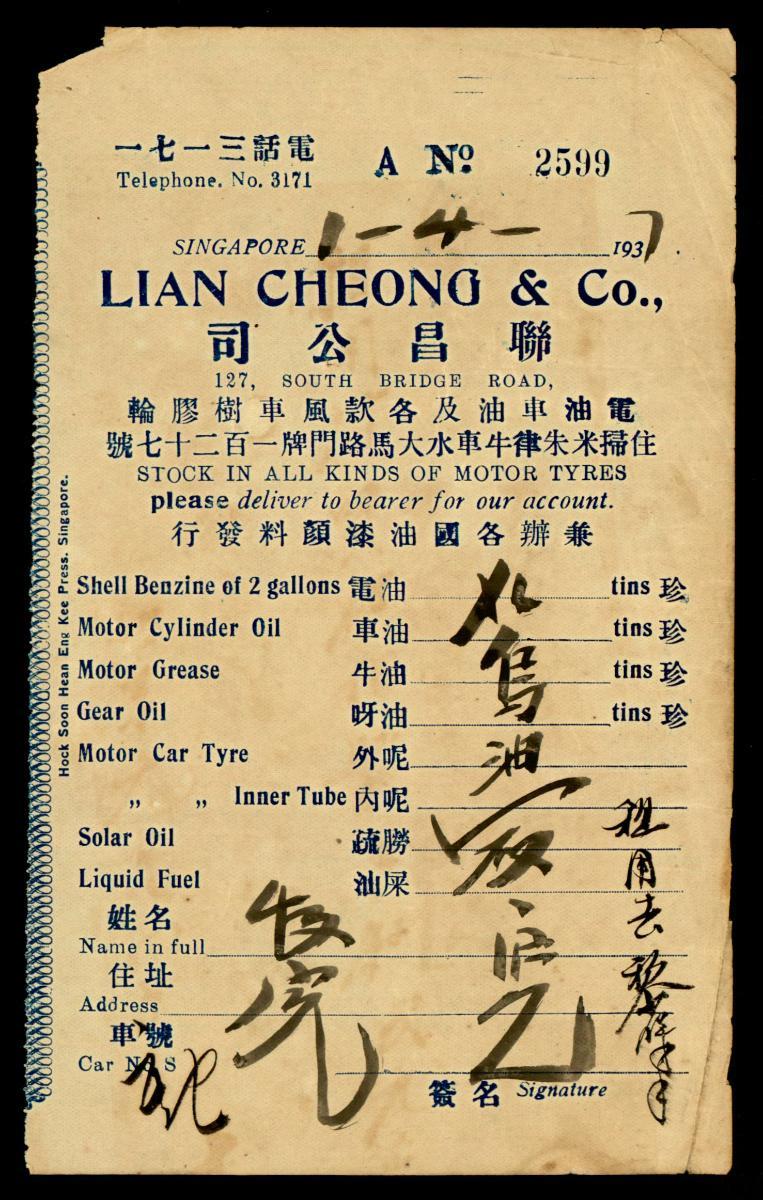 電話三一七一
Telephone. No. 3171
A No. 2599
SINGAPORE 1-4-1937.
LIAN CHEONG & Co.,
聯昌公司
127, SOUTH BRIDGE ROAD,
電油車油及各款風車樹膠輪
住掃米朱律牛車水大馬路門牌一百二十七號
STOCK IN ALL KINDS OF MOTOR TYRES
please deliver to bearer for our account.
兼辦各國油漆顏料發行
Shell Benzine of 2 gallons 電油 tins 珍
Motor Cylinder Oil 車油 tins 珍
Motor Grease 牛油 tins 珍
Gear Oil 呀油 tins 珍
Motor Car Tyre 外呢
„ „ Inner Tube 內呢
Solar Oil 疏朥
Liquid Fuel 油屎
烏油
姓名
Name in full
住址
Address
車號
Car No S
簽名 Signature
用去
Hock Soon Hean Eng Kee Press. Singapore.